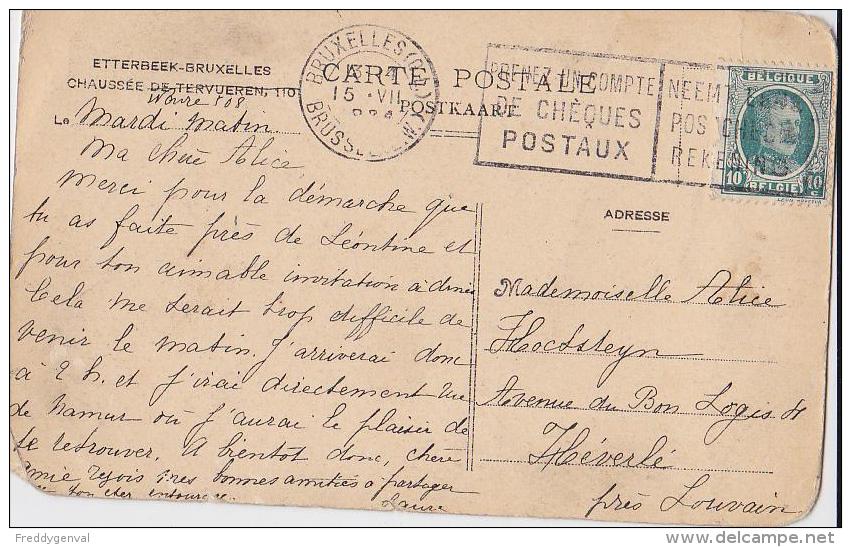 ETTERBEEK-BRUXELLES
CHAUSSÉE DE TERVUEREN, 110
CARTE POSTALE
POSTKAART
BRUXELLES
15 VII
BRUSSEL
PRENEZ UN COMPTE
DE CHÈQUES
POSTAUX
NEEMT
POST
REKENING
BELGIQUE
10c 10c
BELGIË
Le Mardi matin
Ma chère Alice,
Merci pour la démarche que
tu as faite près de Léontine et
pour ton aimable invitation à diner
Cela me serait trop difficile de
venir le matin. J'arriverai donc
à 2 h. et j'irai directement rue
de Namur où j'aurai le plaisir de
te retrouver. A bientôt donc, chère
amie reçois mes bonnes amitiés à partager
ton cher entourage.
Laure
ADRESSE
Mademoiselle Alice
Hocssteyn
Avenue du Bon Logis 4
Héverlé
près Louvain.
Freddygenval
delcampe.net